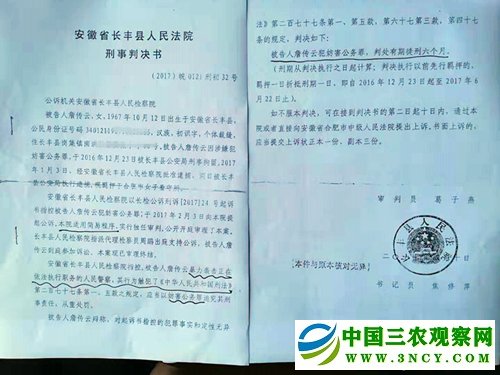 安徽省长丰县人民法院
刑事判决书
(2017)皖0121刑初32号
公诉机关安徽省长丰县人民检察院
被告人詹传云,女,1967年10月12日出生于安徽省长丰县,
公民身份证号码340121196
汉族,初识字,个体裁缝,
住长丰县岗集镇南
被告人詹传云因涉嫌犯
妨害公务罪,于2016年12月23日被长丰县公安局刑事拘留,2017
年1月3日,经安徽省长丰县人民检察院批准逮捕,同日被长丰
县公安局执行逮捕,现羁押于合肥市女子看守所。
安徽省长丰县人民检察院以长检公诉刑诉[2017]24号起诉
书指控被告人詹传云犯妨害公务罪,于2017年2月3日向本院提
起公诉。本院适用简易程序,实行独任审判,公开开庭审理了本案。
长丰县人民检察院指派代理检察员周璐出庭支持公诉,被告人詹
传云到庭参加诉讼。本案现已审理终结。
安徽省长丰县人民检察院指控,被告人詹传云暴力袭击正在
依法执行职务的人民警察,其行为触犯了《中华人民共和国刑法》
第二百七十七条第一、五款之规定,应当以妨害公务罪追究其刑
事责任,从重处罚。
被告人詹传云辩称,对起诉书指控的犯罪事实和定性无异
法》第二百七十七条第一、第五款,第六十七第三款,第四十七
条的规定,判决如下:
被告人詹传云犯妨害公务罪,判处有期徒刑六个月。
(刑期从判决执行之日起计算;判决执行以前先行羁押的,
羁押一日折抵刑期一日,即自2016年12月23日起至2017年6
月22日止)。
如不服本判决,可在接到判决书的第二日起十日内,通过本
院或者直接向安徽省合肥市中级人民法院提出上诉。书面上诉的,
应当提交上诉状正本一份,副本三份。
审判员 葛子燕
长丰县人民法院
二〇
十日
本件与原本核对无异
书记员 焦修萍
中国三农观察网
WWW.3NCY.COM